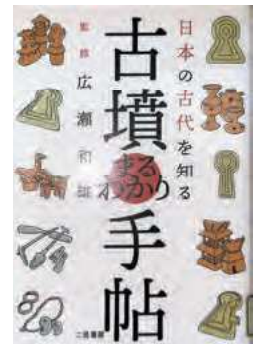 日本の古代を知る
古墳
まるわかり
手帖
監修 広瀬和雄
二見書房